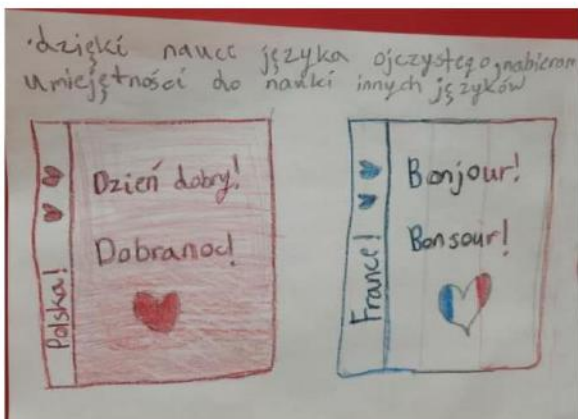 ·dzięki nauce języka ojczystego, nabieram
umiejętności do nauki innych języków
Polska!
Dzień dobry!
Dobranoc!
France!
Bonjour!
Bonsour!